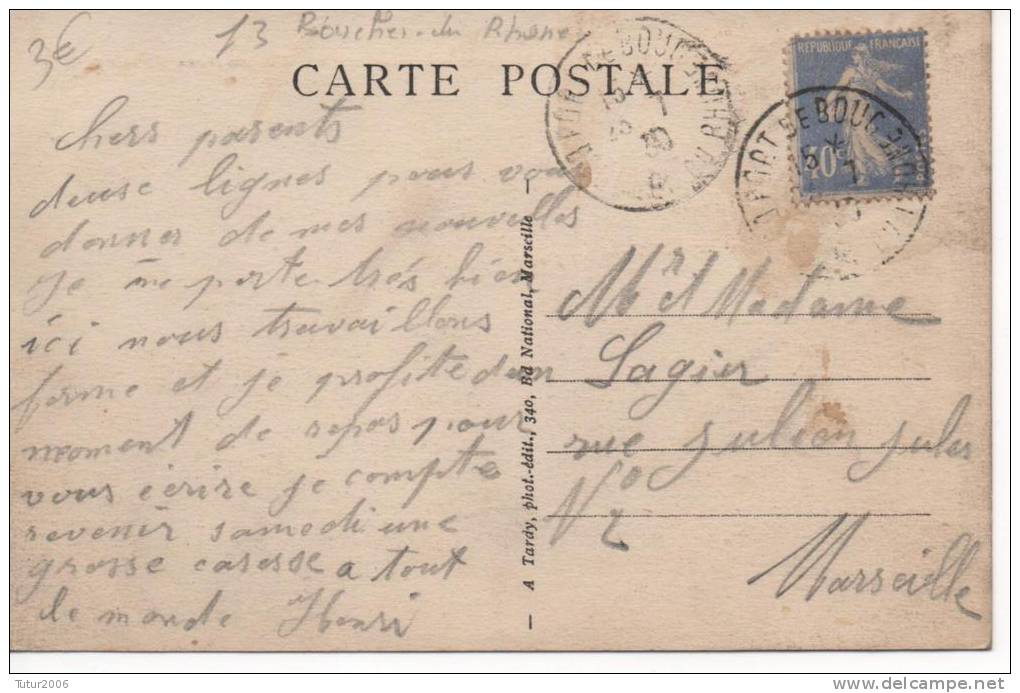 3€
13 Bouches-du Rhone
CARTE POSTALE
REPUBLIQUE FRANÇAISE
40
PORT DE BOUC
PORT DE BOUC
chers parents
deuse lignes pour vous
donner de mes nouvelles
Je me porte très bien
ici nous travaillons
ferme et je profite d'un
moment de repos pour
vous écrire je compte
revenir samedi une
grosse caresse a tout
le monde Henri
A Tardy, phot.-édit., 340, Bd National, Marseille
Mr et Madame
Lagier
rue Julien Jules
N° 2
Marseille
Tutur2006
delcampe.net